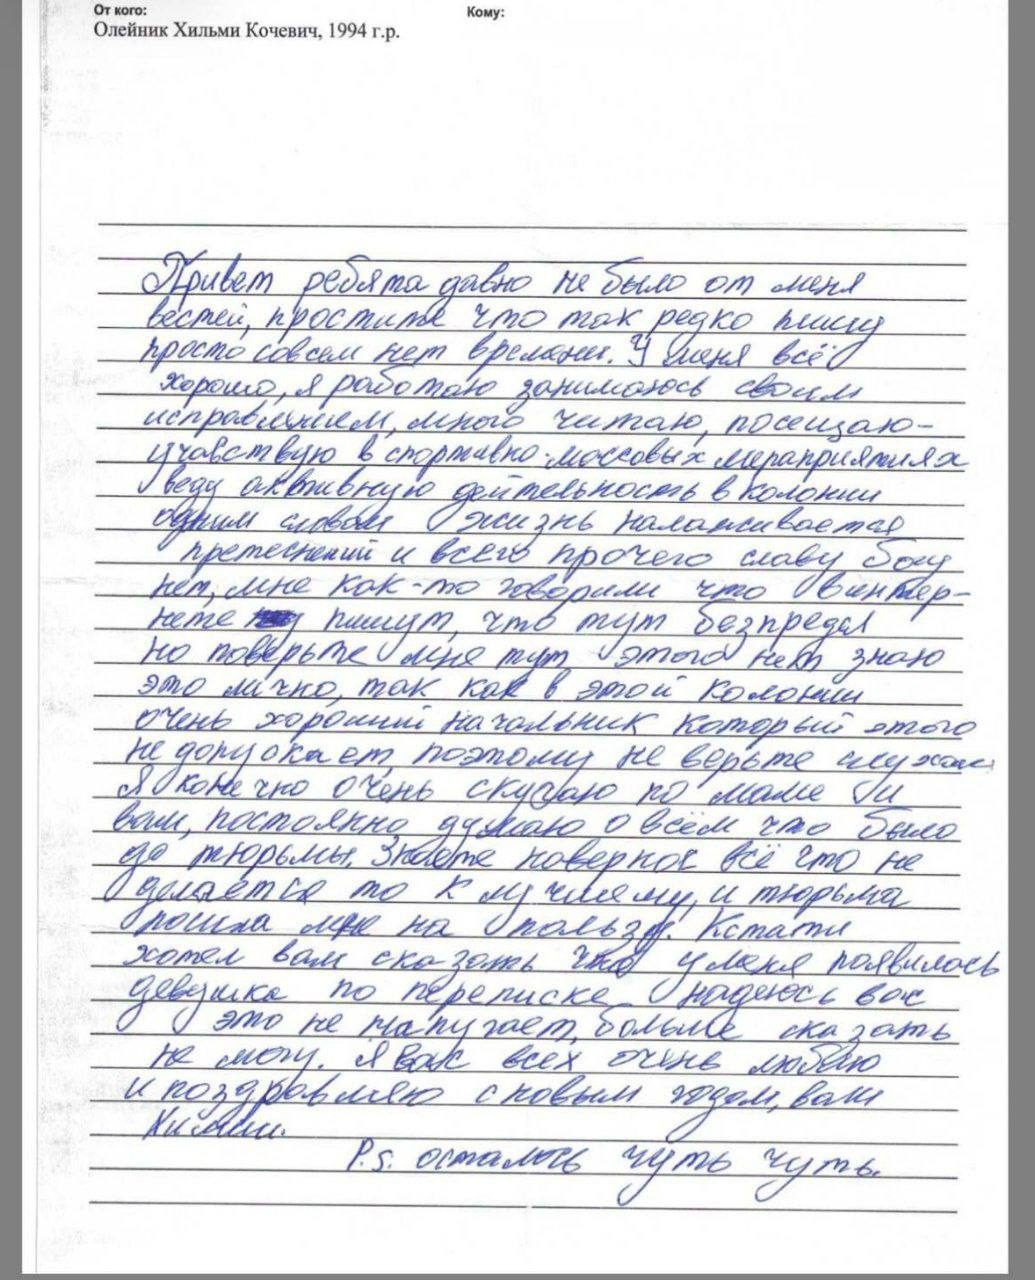 От кого:
Кому:
Олейник Хильми Кочевич, 1994 г.р.
Привет ребята давно не было от меня
вестей, простите что так редко пишу
просто совсем нет времени. У меня всё
хорошо, я работаю занимаюсь своим
исправлением, много читаю, посещаю-
учавствую в спортивно-массовых мераприятиях
веду активную деятельность в колонии
одним словом жизнь налаживается
претеснений и всего прочего славу богу
нет, мне как-то говорили что в интер-
нете пишут, что тут безпредел
но поверьте мне тут этого нет знаю
это лично, так как в этой колонии
очень хороший начальник который этого
не допускает, поэтому не верьте слухам.
Я конечно очень скучаю по маме и
вам, постоянно думаю о всём что было
до тюрьмы. Знаете наверное всё что не
делается то к лучшему, и тюрьма
пошла мне на пользу. Кстати
хотел вам сказать что у меня появилось
девушка по переписке надеюсь вас
это не напугает, больше сказать
не могу. Я вас всех очень люблю
и поздравляю с новым годом, ваш
Хильми.
P.s. осталось чуть чуть.